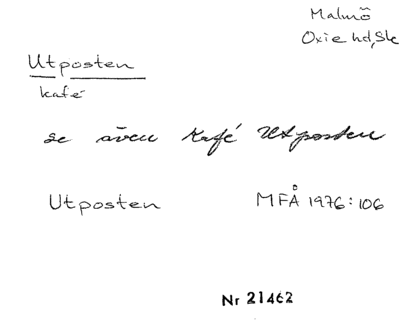 Malmö
Oxie hd, Sk
Utposten
kafé
se även Kafé Utposten
Utposten MFÅ 1976:106
Nr 21462